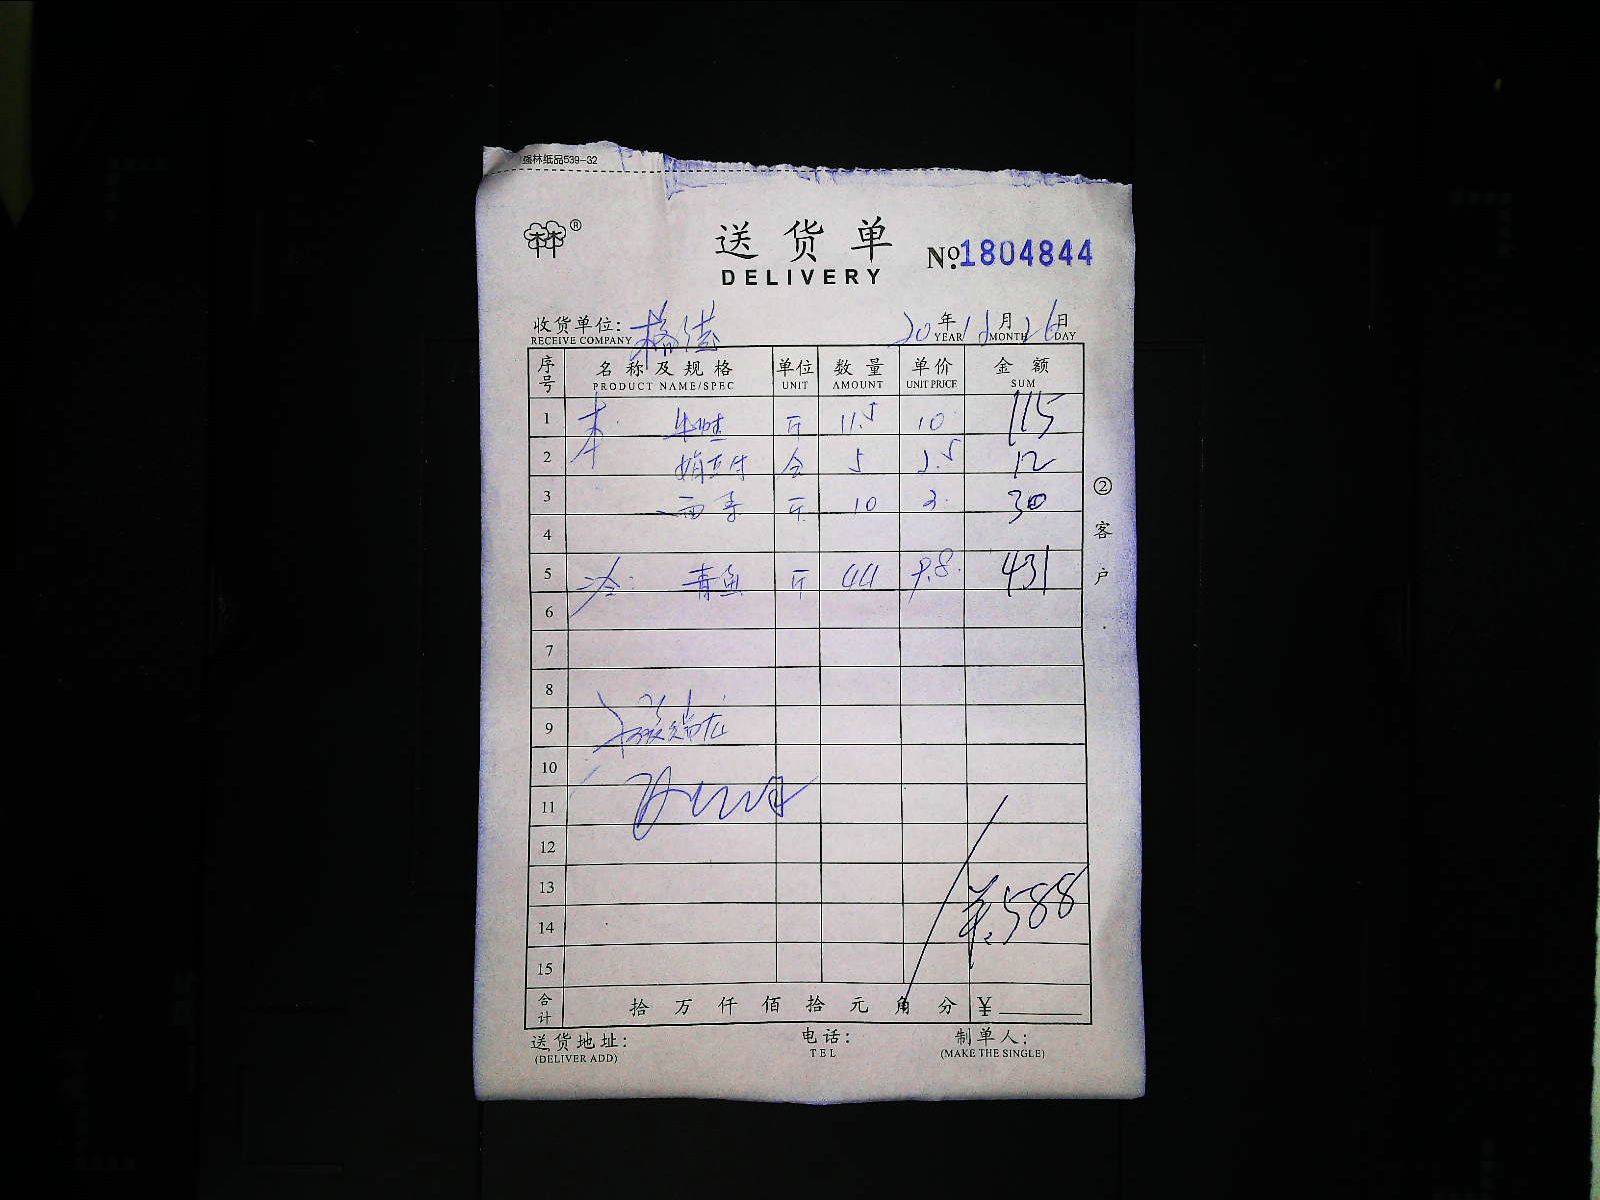 盛林纸品539-32
林林®
送货单 №1804844
DELIVERY
收货单位: 20年 月26日
RECEIVE COMPANY YEAR MONTH DAY
序号 名称及规格 单位 数量 单价 金额
PRODUCT NAME/SPEC UNIT AMOUNT UNIT PRICE SUM
1 本. 牛蛙 斤 11.5 10 115
2 5 2.5 12
3 西芹 斤 10 3. 30
4
5 冷: 青鱼 斤 44 9.8. 431
6
7
8
9
10
11
12
13
14 ¥588
15
合计 拾 万 仟 佰 拾 元 角 分 ¥
送货地址: 电话: 制单人:
(DELIVER ADD) TEL (MAKE THE SINGLE)
②客户